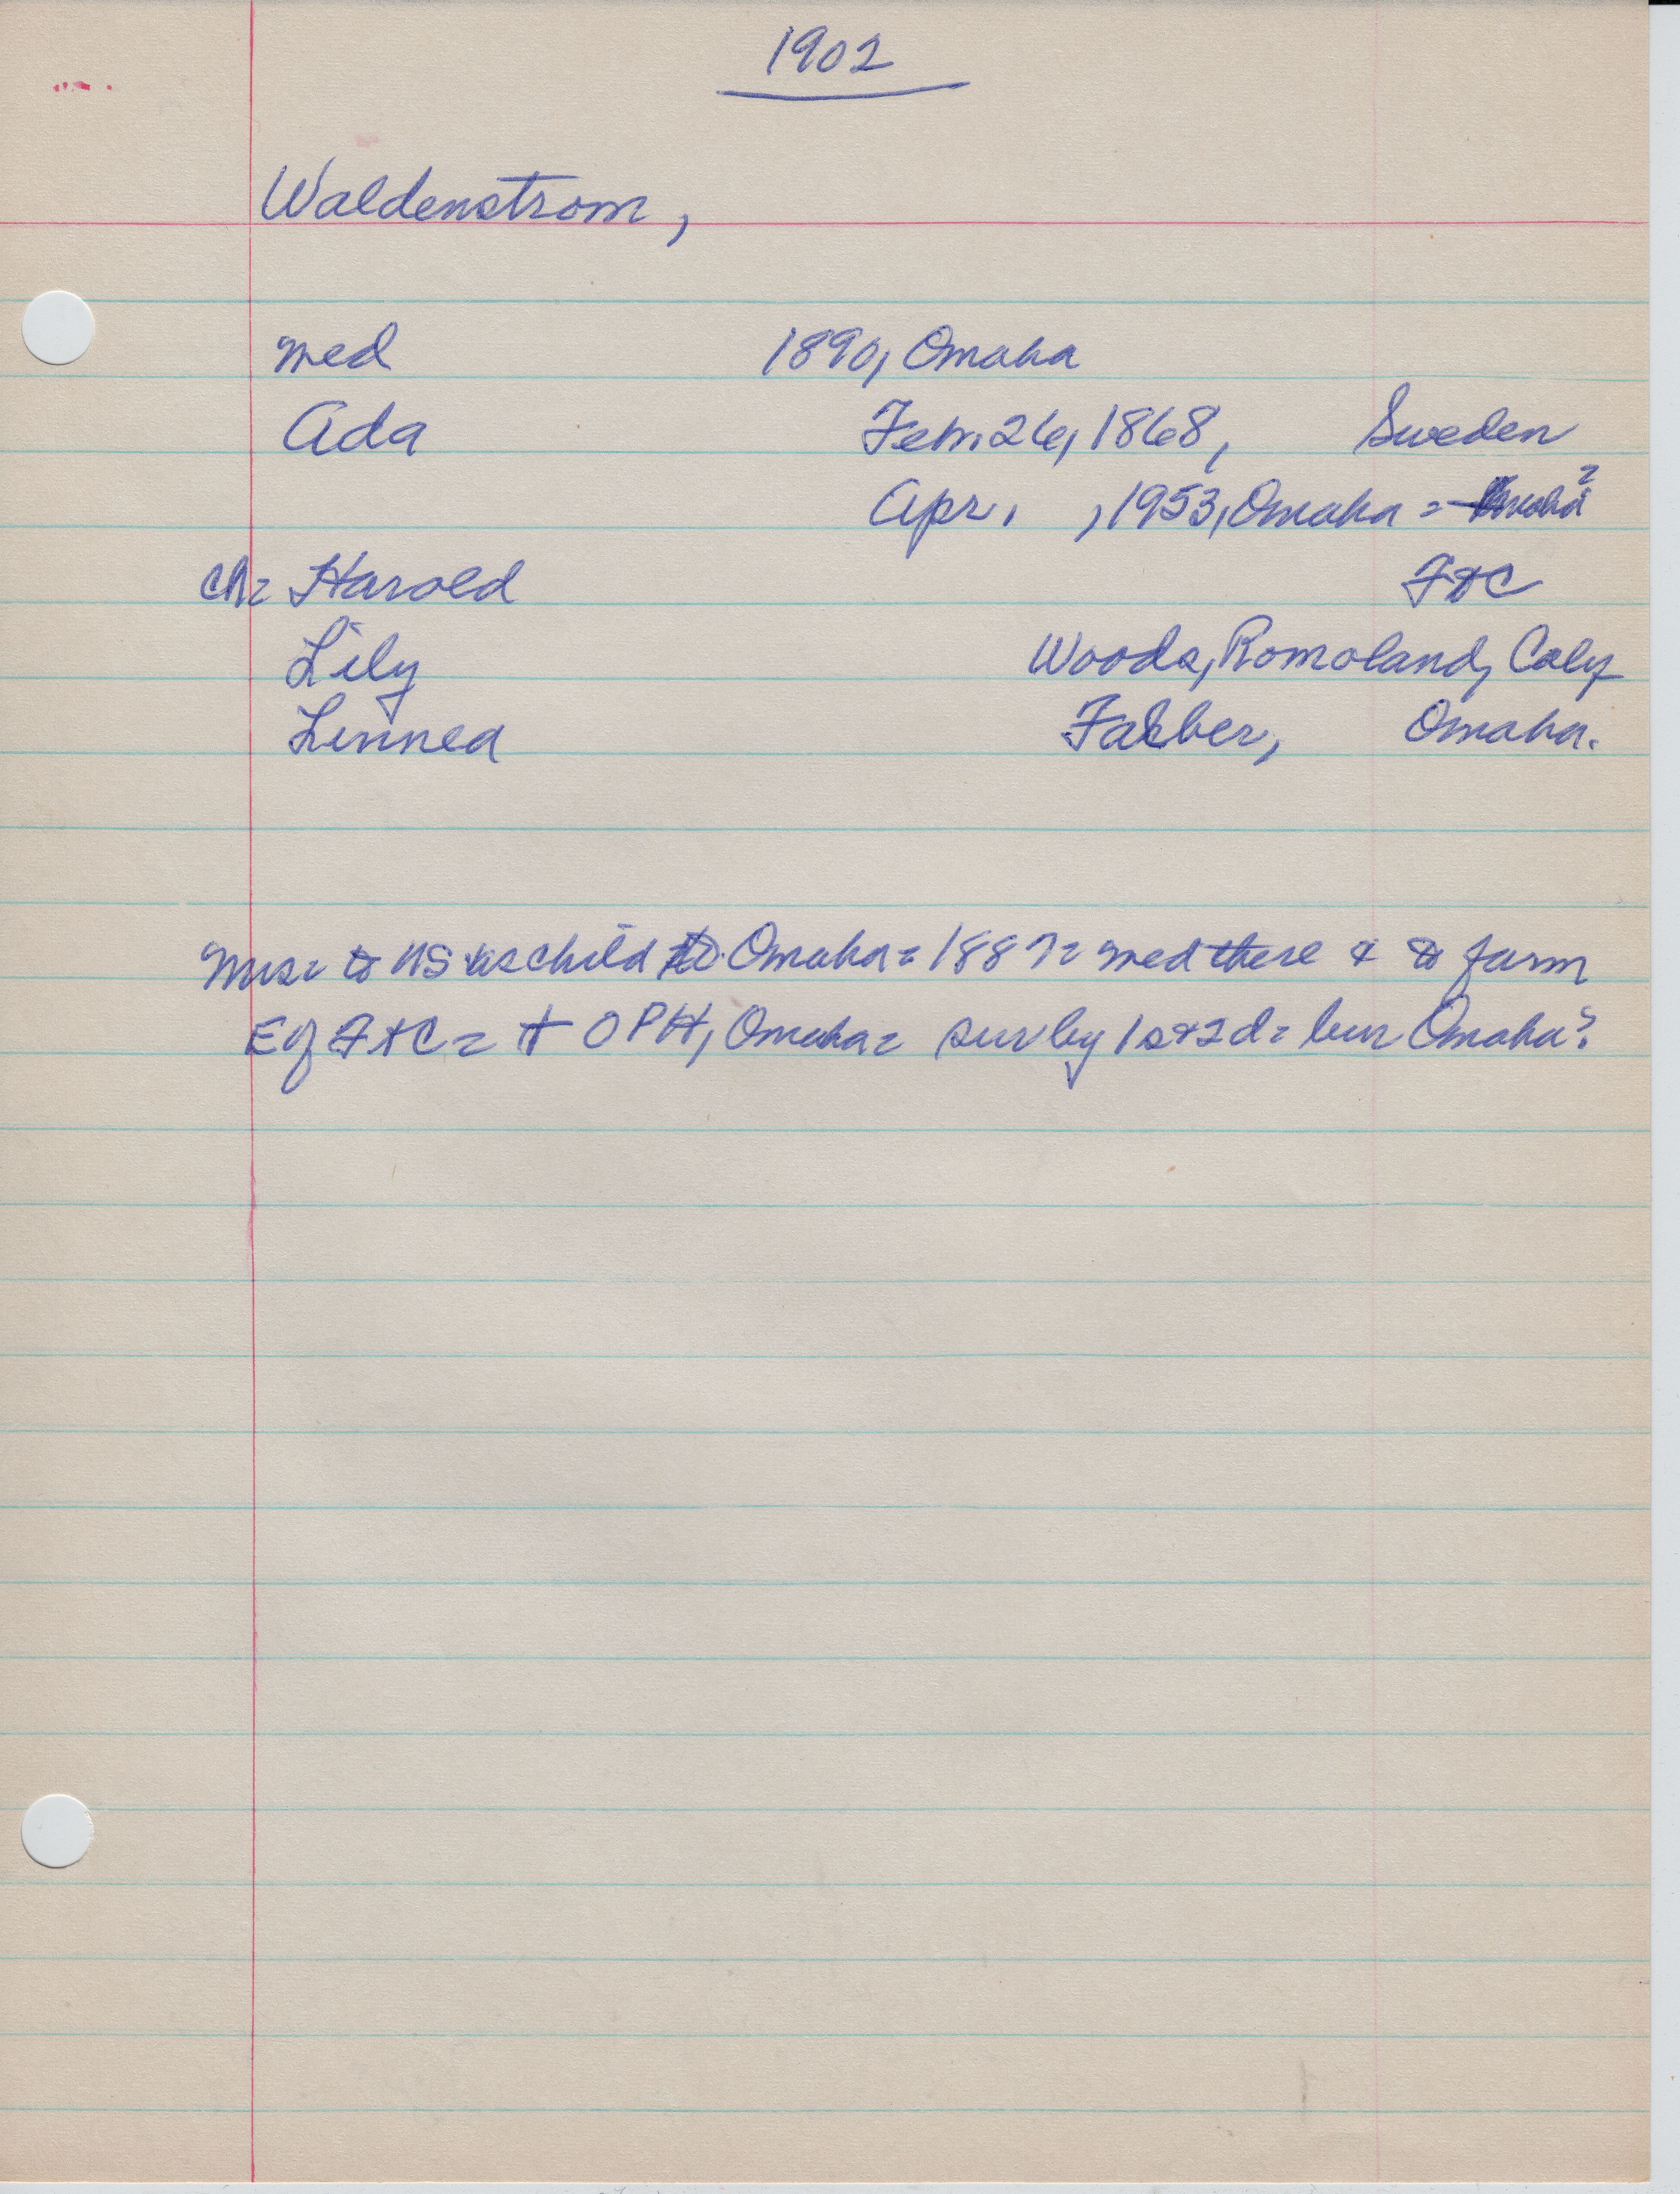 1902
Waldenstrom,
med 1890, Omaha
Ada Feb. 26, 1868, Sweden
Apr. , 1953, Omaha = Omaha?
Ch= Harold FtC
Lily Woods, Romoland, Calif
Linnea Falber, Omaha.
Mrs= to US as child to Omaha = 1887= med there & to farm
E of FtC = + OPH, Omaha= sur by 1s+2d= bur Omaha?